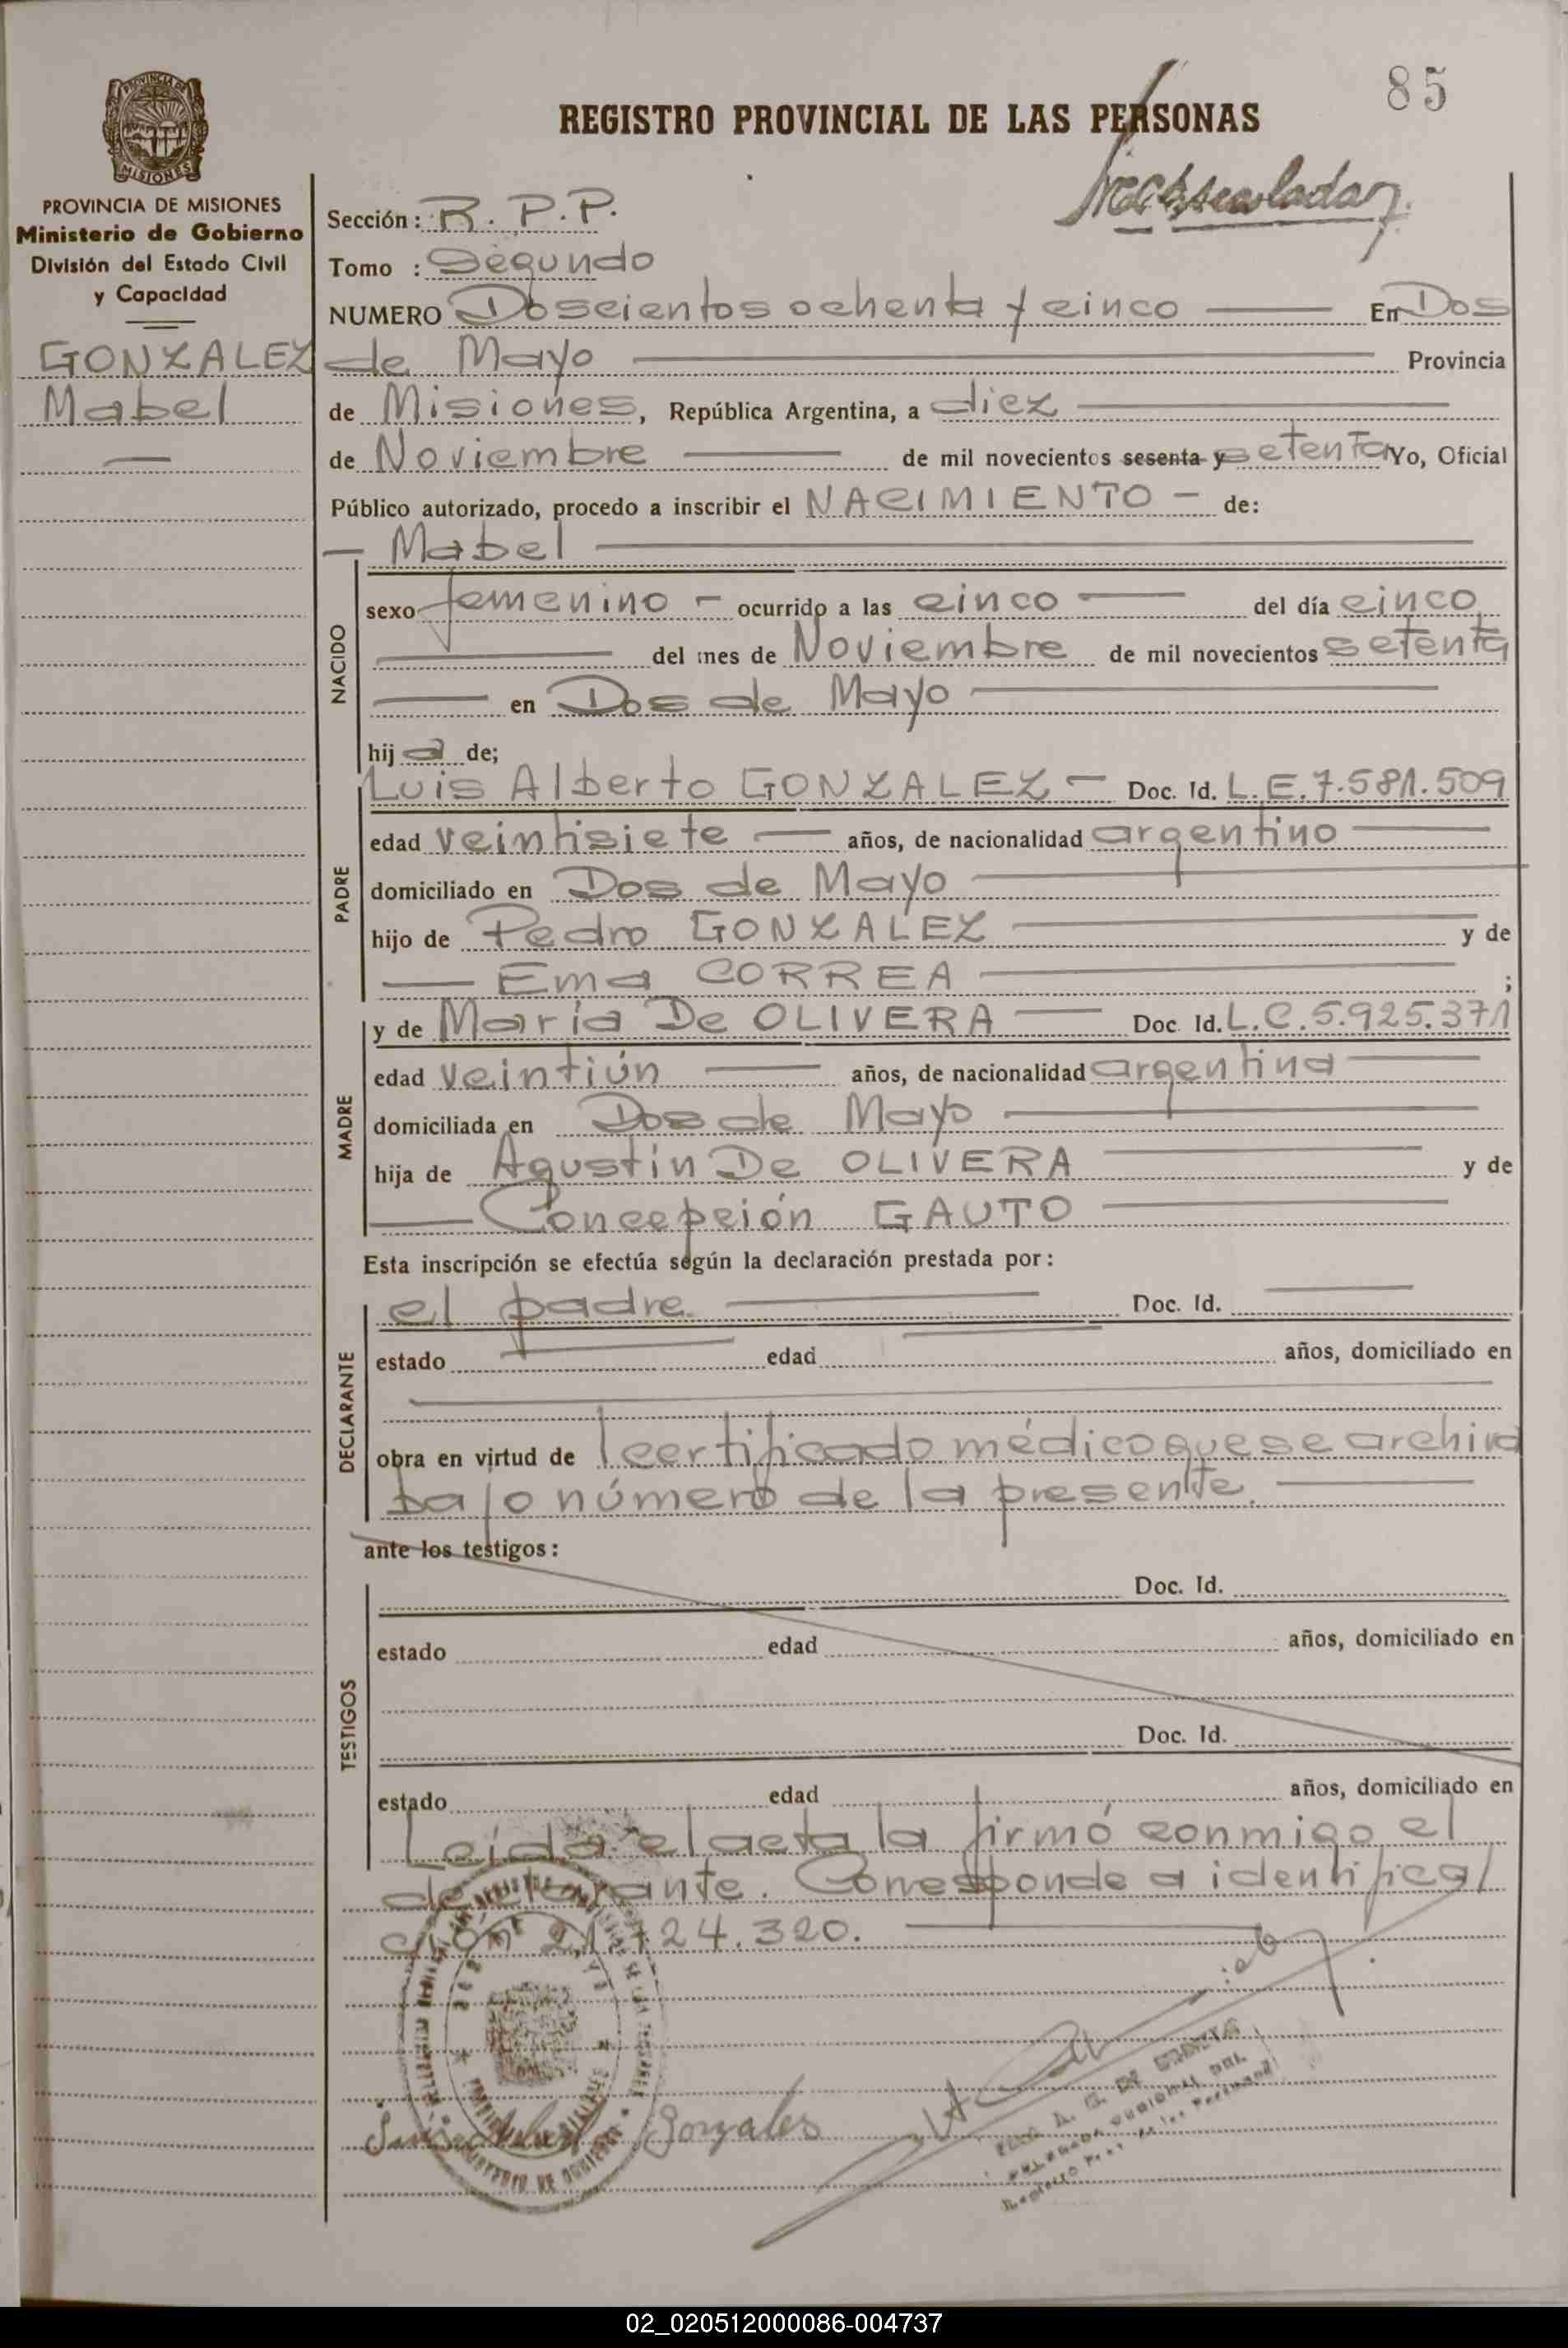 85
REGISTRO PROVINCIAL DE LAS PERSONAS
PROVINCIA DE
MISIONES
PROVINCIA DE MISIONES
Ministerio de Gobierno
División del Estado Civil
y Capacidad
GONZALEZ
Mabel
Sección: R. P. P.
Tomo : Segundo
NUMERO Doscientos ochenta y cinco En Dos
de Mayo Provincia
de Misiones, República Argentina, a diez
de Noviembre de mil novecientos sesenta y setenta Yo, Oficial
Público autorizado, procedo a inscribir el NACIMIENTO - de:
Mabel
NACIDO
sexo femenino - ocurrido a las cinco del día cinco
del mes de Noviembre de mil novecientos setenta
en Dos de Mayo
hij a de;
PADRE
Luis Alberto GONZALEZ - Doc. Id. L.E. 7.581.509
edad veintisiete años, de nacionalidad argentino
domiciliado en Dos de Mayo
hijo de Pedro GONZALEZ y de
Ema CORREA ;
MADRE
y de María De OLIVERA Doc. Id. L.C. 5.925.371
edad veintiún años, de nacionalidad argentina
domiciliada en Dos de Mayo
hija de Agustín De OLIVERA y de
Concepción GAUTO
Esta inscripción se efectúa según la declaración prestada por:
DECLARANTE
el padre. Doc. Id.
estado edad años, domiciliado en
obra en virtud de certificado médico que se archiva
bajo número de la presente.
ante los testigos:
TESTIGOS
Doc. Id.
estado edad años, domiciliado en
Doc. Id.
estado edad años, domiciliado en
Leída el acta la firmó conmigo el
declarante. Corresponde a identifica
ción 21.724.320.
Gonzales
02_020512000086-004737